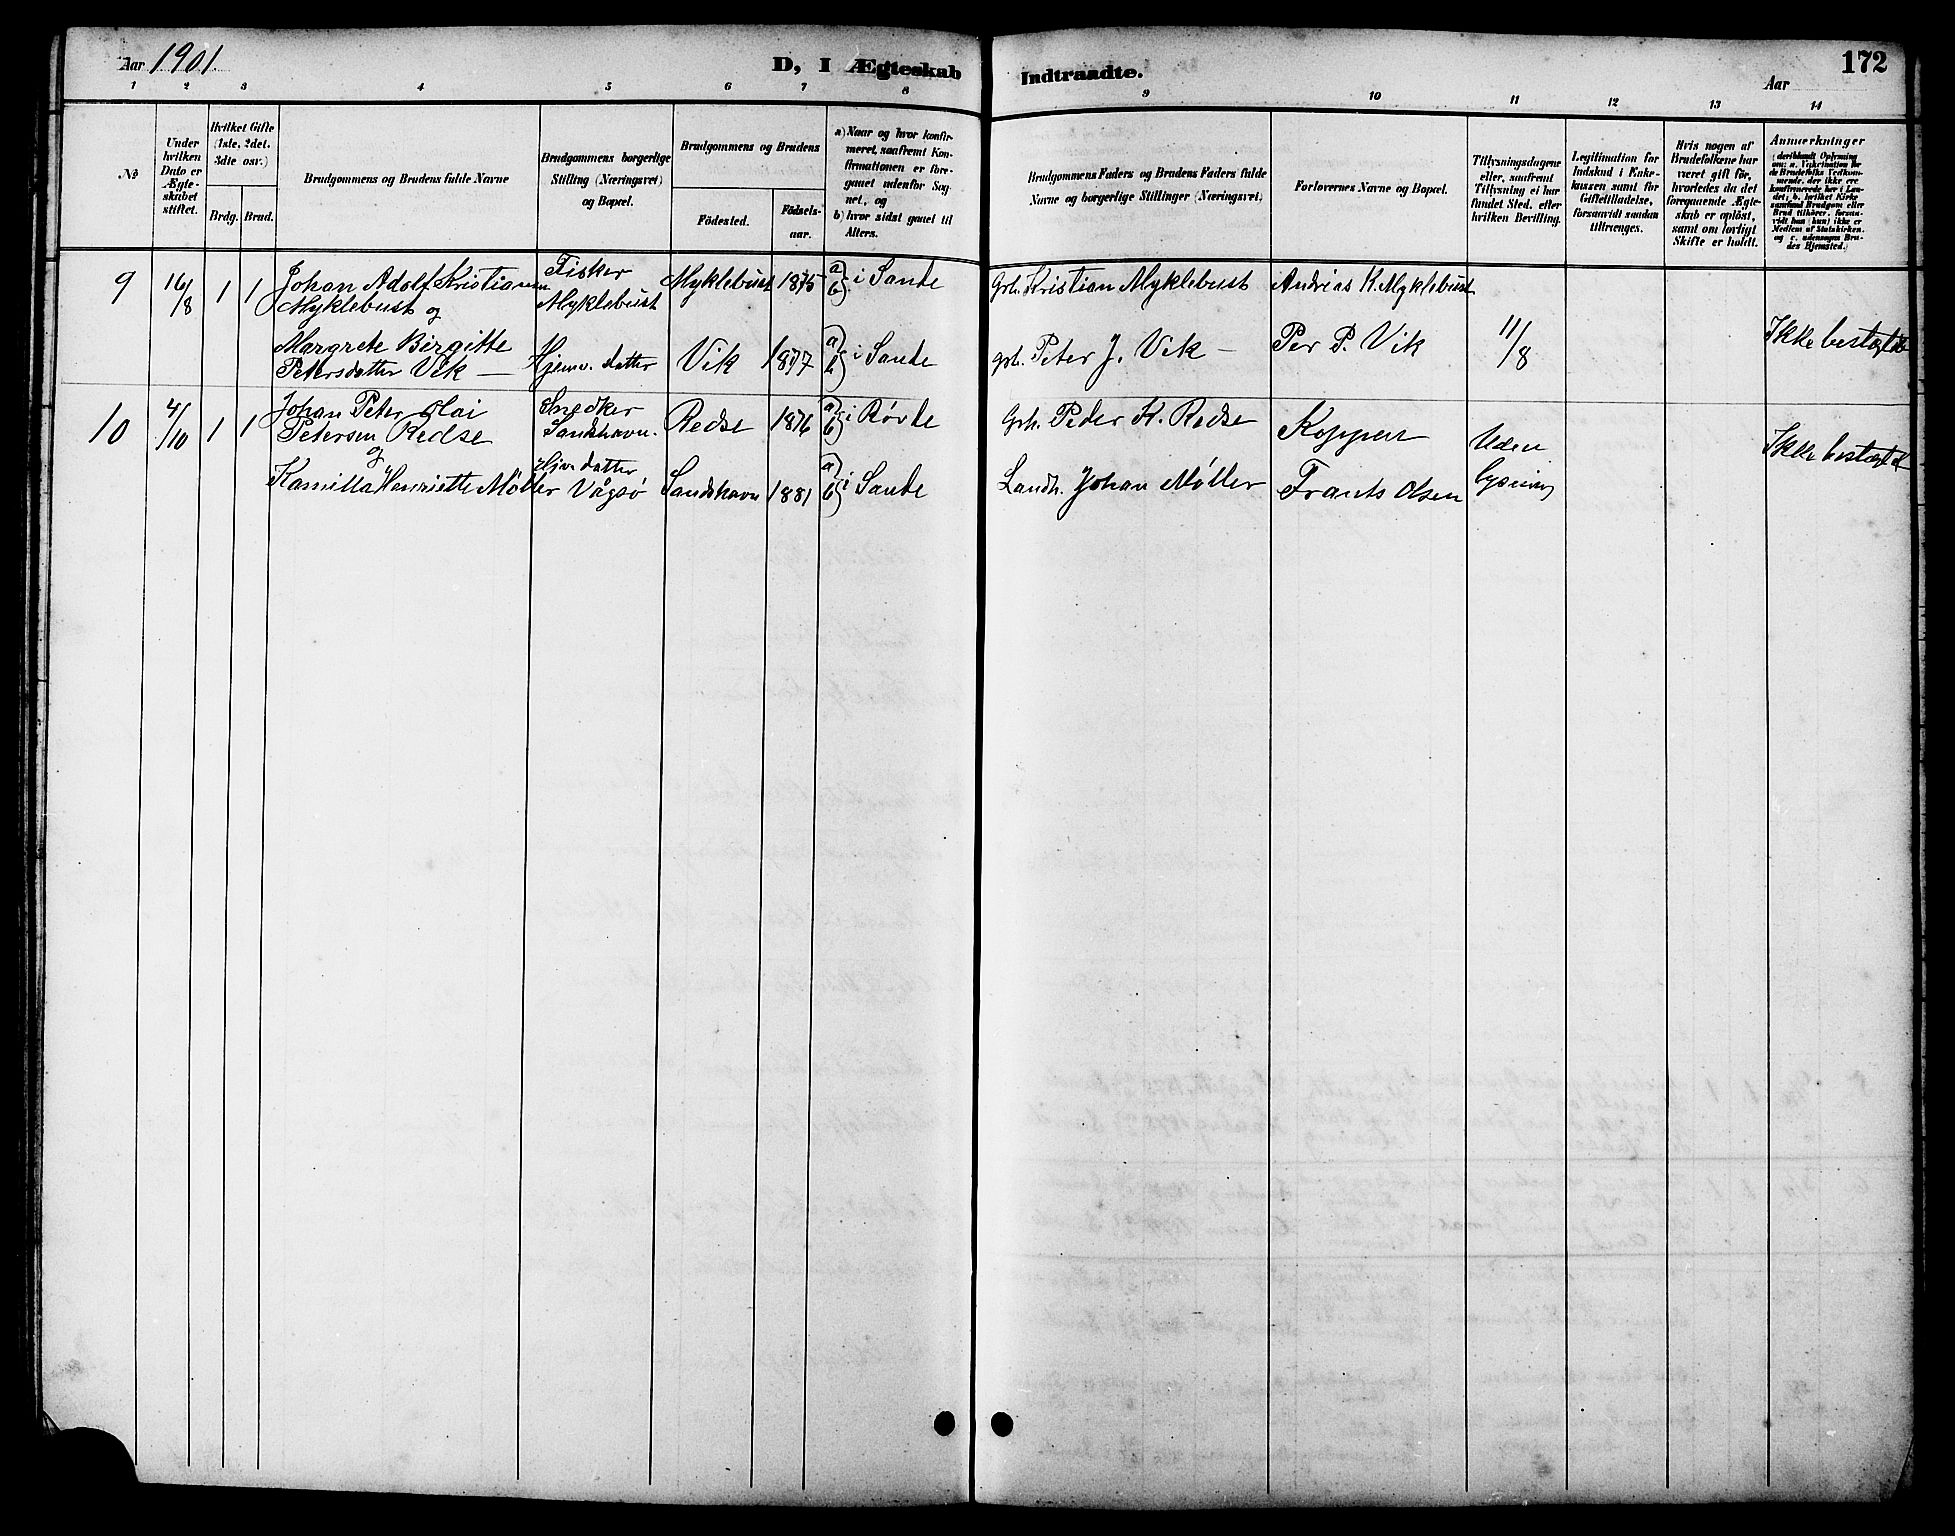 Aar 1901.
D, I Ægteskab Indtraadte.
172
Aar
1 2 3 4 5 6 7 8 9 10 11 12 13 14
No
Under hvilken Dato er Ægteskabet stiftet.
Hvilket Gifte (1ste, 2det, 3die osv.)
Brdg. Brud.
Brudgommens og Brudens fulde Navne
Brudgommens borgerlige Stilling (Næringsvei) og Bopæl.
Brudgommens og Brudens
Födested.
Födsels-aar.
a) Naar og hvor konfirmeret, saafremt Konfirmationen er foregaaet udenfor Sognet, og
b) hvor sidst gaaet til Alters.
Brudgommens Faders og Brudens Faders fulde Navne og borgerlige Stillinger (Næringsvei)
Forlovernes Navne og Bopæl.
Tillysningsdagene eller, saafremt Tillysning ei har fundet Sted, efter hvilken Bevilling.
Legitimation for Indskud i Enkekassen samt for Giftetilladelse, forsaavidt saadan tiltrænges.
Hvis nogen af Brudefolkene har været gift för, hvorledes da det foregaaende Ægteskab er oplöst, samt om lovligt Skifte er holdt.
Anmærkninger
9 16/8 1 1 Johan Adolf Kristiansen Myklebust og
Fisker Myklebust
Myklebust 1875 a) b) i Sande
Grb. Kristian Myklebust
Andrias K. Myklebust
Margrete Birgitte Petersdatter Vik —
Hjemv. datter
Vik 1877 a) b) i Sande
grb. Peter J. Vik —
Per P. Vik
11/8
Ikke beslægtede
10 4/10 1 1 Johan Peter
Petersen Redse og
Snedker Sandshavn.
Redse 1876 a) b) i Rövde
Grb. Peder K. Redse
Uden
Ikke beslægtet
Kamilla Henriette Møller
datter Vågsö
Sandshavn 1881 a) b) i Sande
Landh. Johan Møller
Frants Olsen
lysning